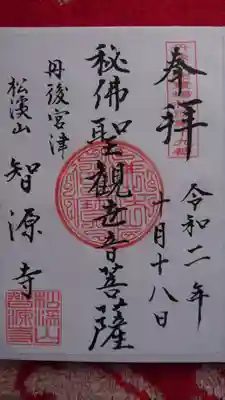 奉拝
令和二年
十月十八日
秘佛聖観世音菩薩
丹後宮津
松溪山
智源寺
松溪山
智源寺